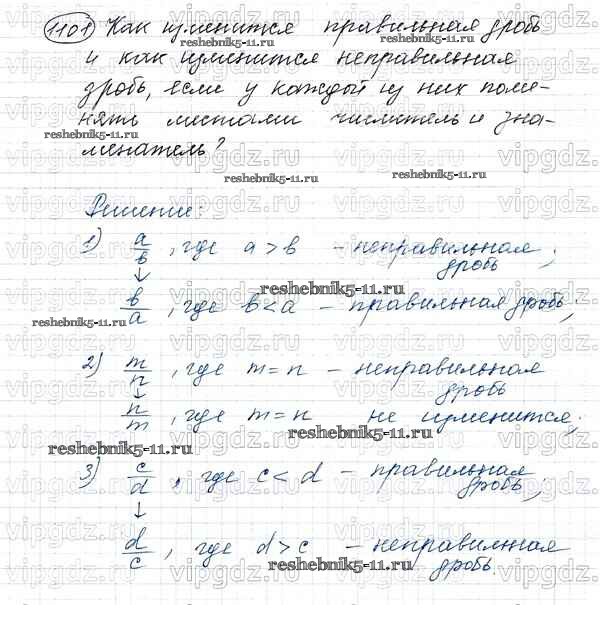 1101 Как изменится правильная дробь
reshebnik5-11.ru reshebnik5-11.ru
и как изменится неправильная
дробь, если у каждой из них поме-
нять местами числитель и зна-
reshebnik5-11.ru
менатель?
vipgdz.ru vipgdz.ru vipgdz.ru
reshebnik5-11.ru reshebnik5-11.ru
Решение:
1) a/b, где a > b – неправильная
дробь;
↓
reshebnik5-11.ru
b/a, где b < a – правильная дробь;
reshebnik5-11.ru
2) m/n, где m = n – неправильная
дробь
↓
n/m, где m = n не изменится;
reshebnik5-11.ru
reshebnik5-11.ru
3) c/d, где c < d – правильная
дробь;
↓
d/c, где d > c – неправильная
дробь.
reshebnik5-11.ru